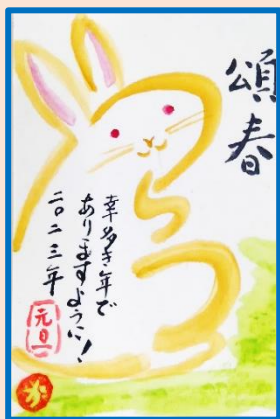 頌春
幸多き年で
ありますように!
二〇二三年
元旦